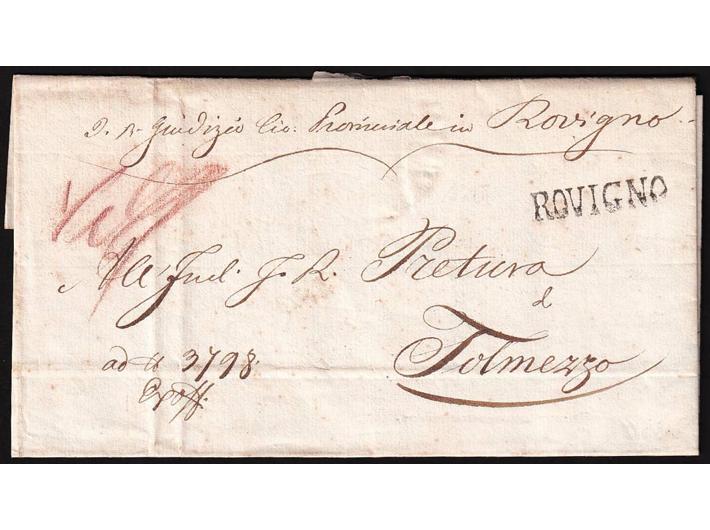 I. R. Giudizio Civ: Provinciale in Rovigno
ROVIGNO
All' Incl. I. R. Pretura
d
Tolmezzo
ad # 3798.
Exoff: